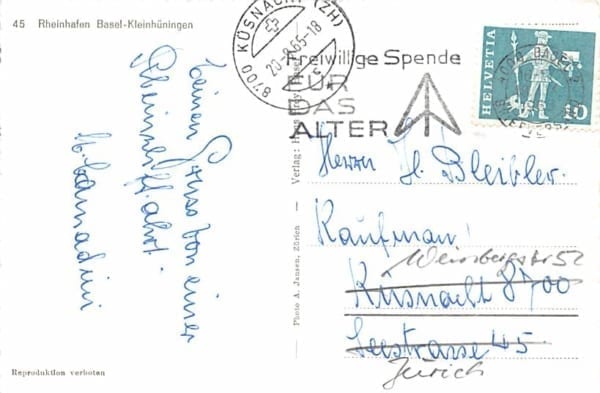 45 Rheinhafen Basel-Kleinhüningen
8700 KÜSNACHT (ZH)
20-8.65-18
Freiwillige Spende
FÜR
DAS
ALTER
HELVETIA
10
einen Gruss von einer
Rheinschiffahrt.
Verlag:
Photo A. Jansen, Zürich
Herrn H. Bleibler.
Kaufman
Weinbergstr 52
Küsnacht 8700
Seestrasse 45
Zürich
Reproduktion verboten